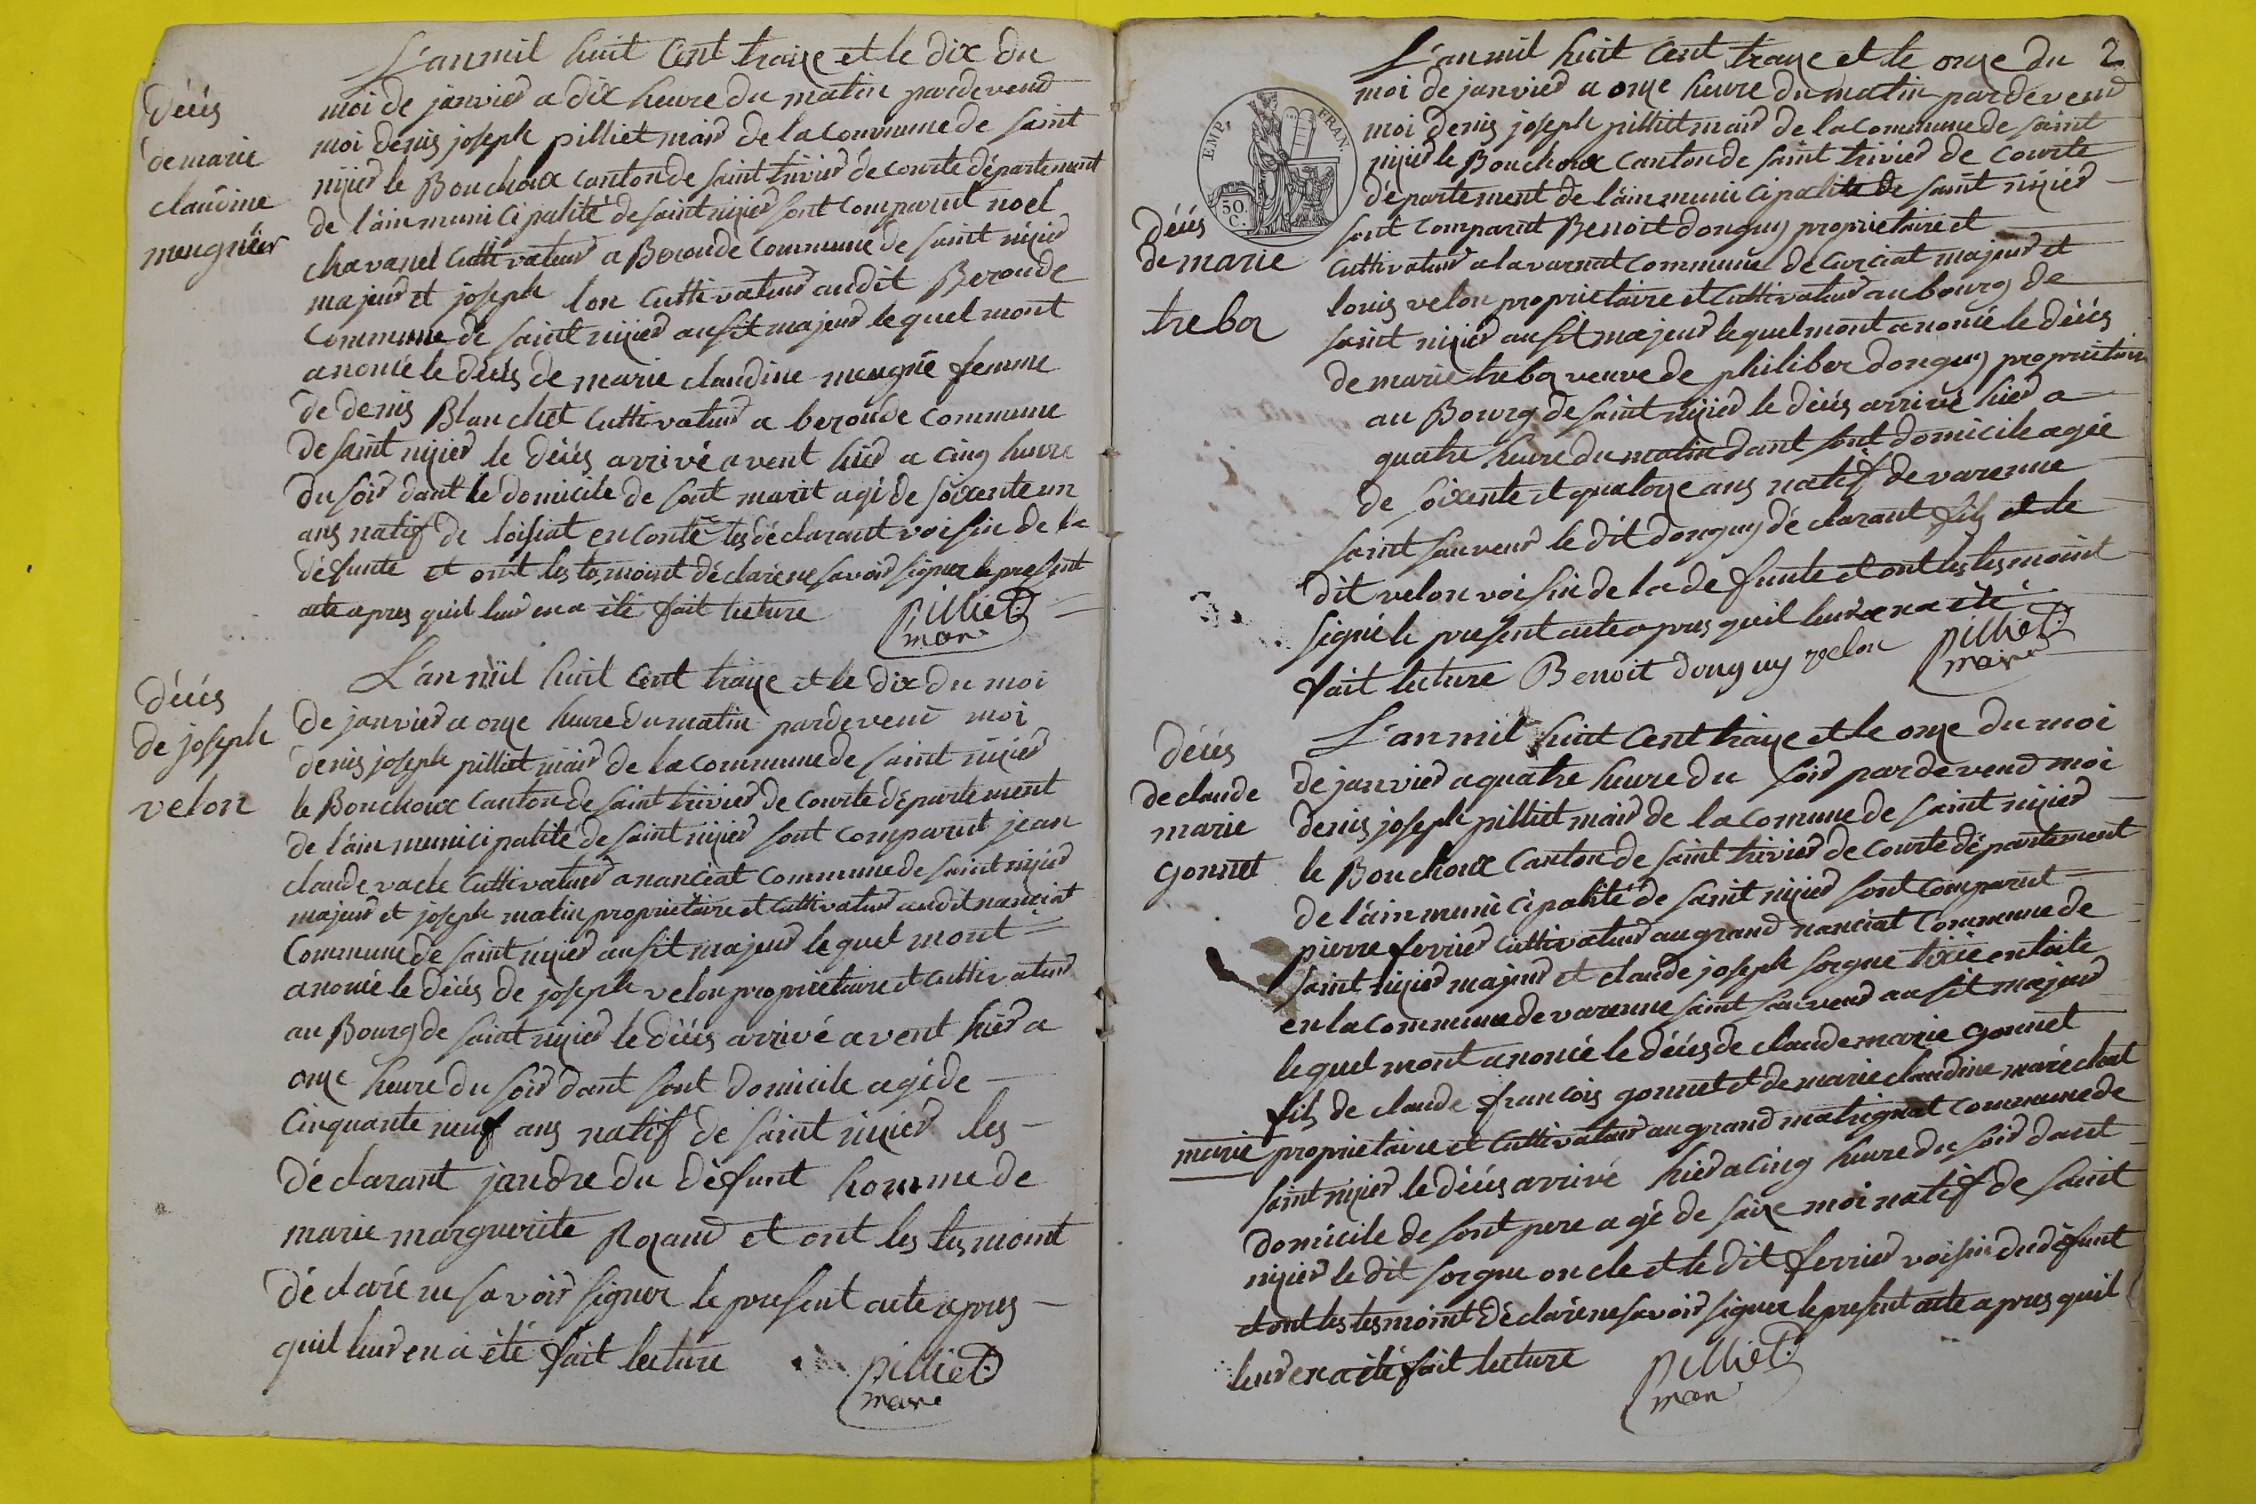 décés
de marie
claudine
meugnier
L'an mil huit Cent traize et le dix du
moi de janvier a dix heure du matin pardevend
moi denis joseph pilliet maire de la Commune de saint
nizier le Bouchoux canton de saint trivier de courte département
de l'ain municipalité de saint nizier sont comparut noel
chavanel Cultivateur a Beroude commune de saint nizier
majeur et joseph lon Cultivateur audit Beroude
Commune de saint nizier ausit majeur lequel mont
anoncé le décés de marie claudine meugnié femme
de denis Blanchet Cultivateur a beroude commune
de saint nizier le décés arrivé avent hier a cinq heure
du soir dant le domicile de sont marit agé de soixente un
ans natif de loisiat en Conté les déclarant voisin de la
défunte et ont les tesmoint déclaré ne savoir signer le present
acte apres quil leur en a été fait lecture
Pilliet
maire
décés
de joseph
velon
L'an mil huit Cent traize et le dix du moi
de janvier a onze heure du matin pardevend moi
denis joseph pilliet maire de la commune de saint nizier
le Bouchoux Canton de saint trivier de Courte département
de l'ain municipalité de saint nizier sont comparut jean
claude vacle Cultivateur a nanciat Commune de saint nizier
majeur et joseph matin proprietaire et Cultivateur audit nanciat
Commune de saint nizier ausit majeur lequel mont
anoncé le décés de joseph velon proprietaire et Cultivateur
au Bourg de saint nizier le décés arrivé avent hier a
onze heure du soir dant sont domicile agé de
Cinquante neuf ans natif de saint nizier les
déclarant jandre du défunt homme de
marie marguerite Rozand et ont les tesmoint
déclaré ne savoir signer le present acte apres
quil leur en a été fait lecture
pilliet
maire
2
EMP. FRAN.
50
C.
décés
de marie
treboz
L'an mil huit Cent traize et le onze du
moi de janvier a onze heure du matin pardevend
moi denis joseph pilliet maire de la commune de saint
nizier le Bouchoux Canton de saint trivier de Courte
département de l'ain municipalité de saint nizier
sont comparut Benoit donguy proprietaire et
Cultivateur a lavarnat commune de Curciat majeur et
louis velon proprietaire et Cultivateur au bourg de
saint nizier ausit majeur lequel mont anoncé le décés
de marie treboz veuve de philiber donguy proprietaire
au Bourg de saint nizier le décés arrivé hier a
quatre heure du matin dant sont domicile agée
de soixente et quatorze ans natif de varenne
saint sauveur le dit donguy déclarant fils et le
dit velon voisin de la defunte et ont les tesmoint
signé le present acte apres quil leur en a été
fait lecture Benoit donguy velon
pilliet
maire
décés
de claude
marie
gonnet
L'an mil huit Cent traize et le onze du moi
de janvier a quatre heure du soir pardevend moi
denis joseph pilliet maire de la comune de saint nizier
le Bouchoux Canton de saint trivier de Courte département
de l'ain municipalité de saint nizier sont comparut
pierre ferrier Cultivateur au grand nanciat Commune de
saint nizier majeur et claude joseph sorgue tixié en toile
en la commune de varenne saint sauveur ausit majeur
lequel mont anoncé le décés de claude marie gonnet
fils de claude françois gonnet et de marie claudine maréchal
marie proprietaire et Cultivateur au grand matignat commune de
saint nizier le décés arrivé hier a cinq heure du soir dant
domicile de sont pere agé de saize moi natif de saint
nizier le dit sorgue oncle et le dit ferrier voisin du défunt
et ont les tesmoint déclaré ne savoir signer le present acte apres quil
leur en a été fait lecture
pilliet
maire